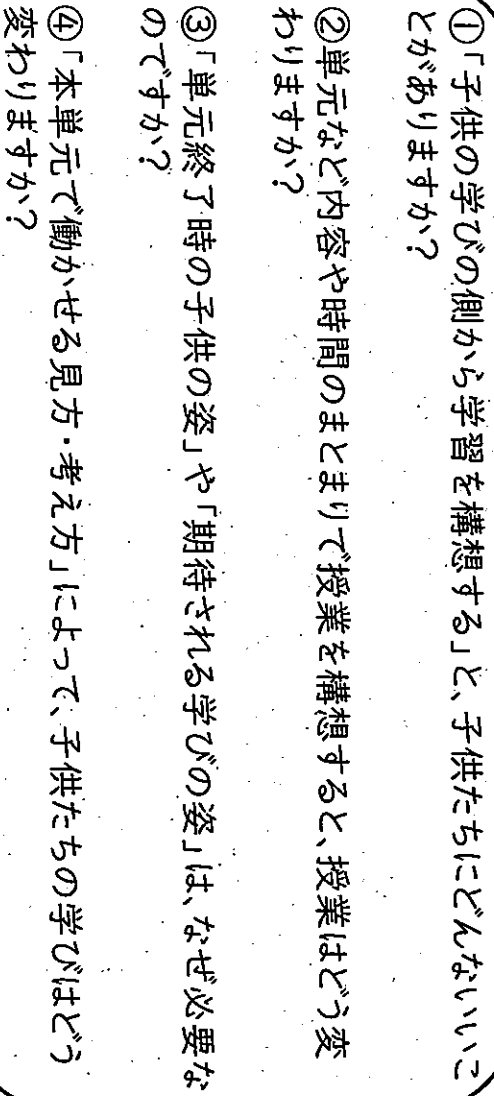 ①「子供の学びの側から学習を構想する」と、子供たちにどんないいこ
とがありますか?
②単元など内容や時間のまとまりで授業を構想すると、授業はどう変
わりますか?
③「単元終了時の子供の姿」や「期待される学びの姿」は、なぜ必要な
のですか?
④「本単元で働かせる見方・考え方」によって、子供たちの学びはどう
変わりますか?